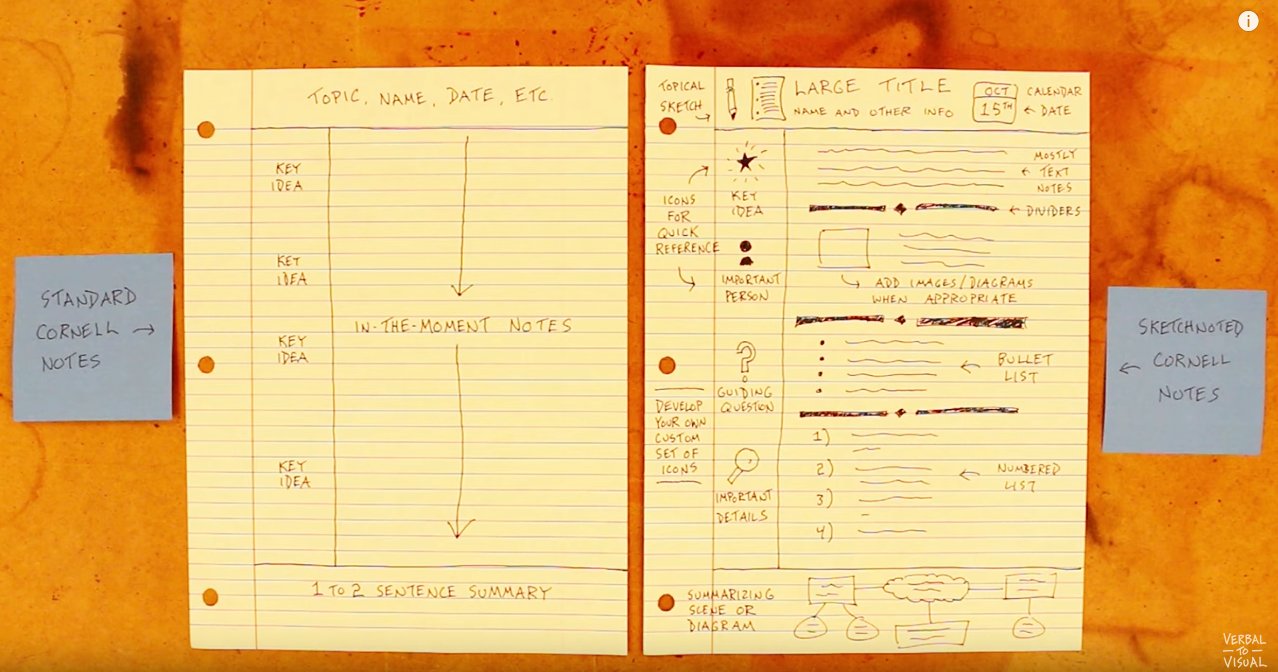 STANDARD
CORNELL →
NOTES
TOPIC, NAME, DATE, ETC.
KEY
IDEA
KEY
IDEA
KEY
IDEA
KEY
IDEA
IN-THE-MOMENT NOTES
1 TO 2 SENTENCE SUMMARY
TOPICAL
SKETCH
LARGE TITLE
NAME AND OTHER INFO
OCT
15TH
CALENDAR
← DATE
ICONS
FOR
QUICK
REFERENCE
DEVELOP
YOUR OWN
CUSTOM
SET OF
ICONS
KEY
IDEA
IMPORTANT
PERSON
?
GUIDING
QUESTION
IMPORTANT
DETAILS
MOSTLY
← TEXT
NOTES
← DIVIDERS
ADD IMAGES/DIAGRAMS
WHEN APPROPRIATE
← BULLET
LIST
1)
2)
3)
4)
← NUMBERED
LIST
SUMMARIZING
SCENE OR
DIAGRAM
SKETCHNOTED
← CORNELL
NOTES
i
VERBAL
TO
VISUAL